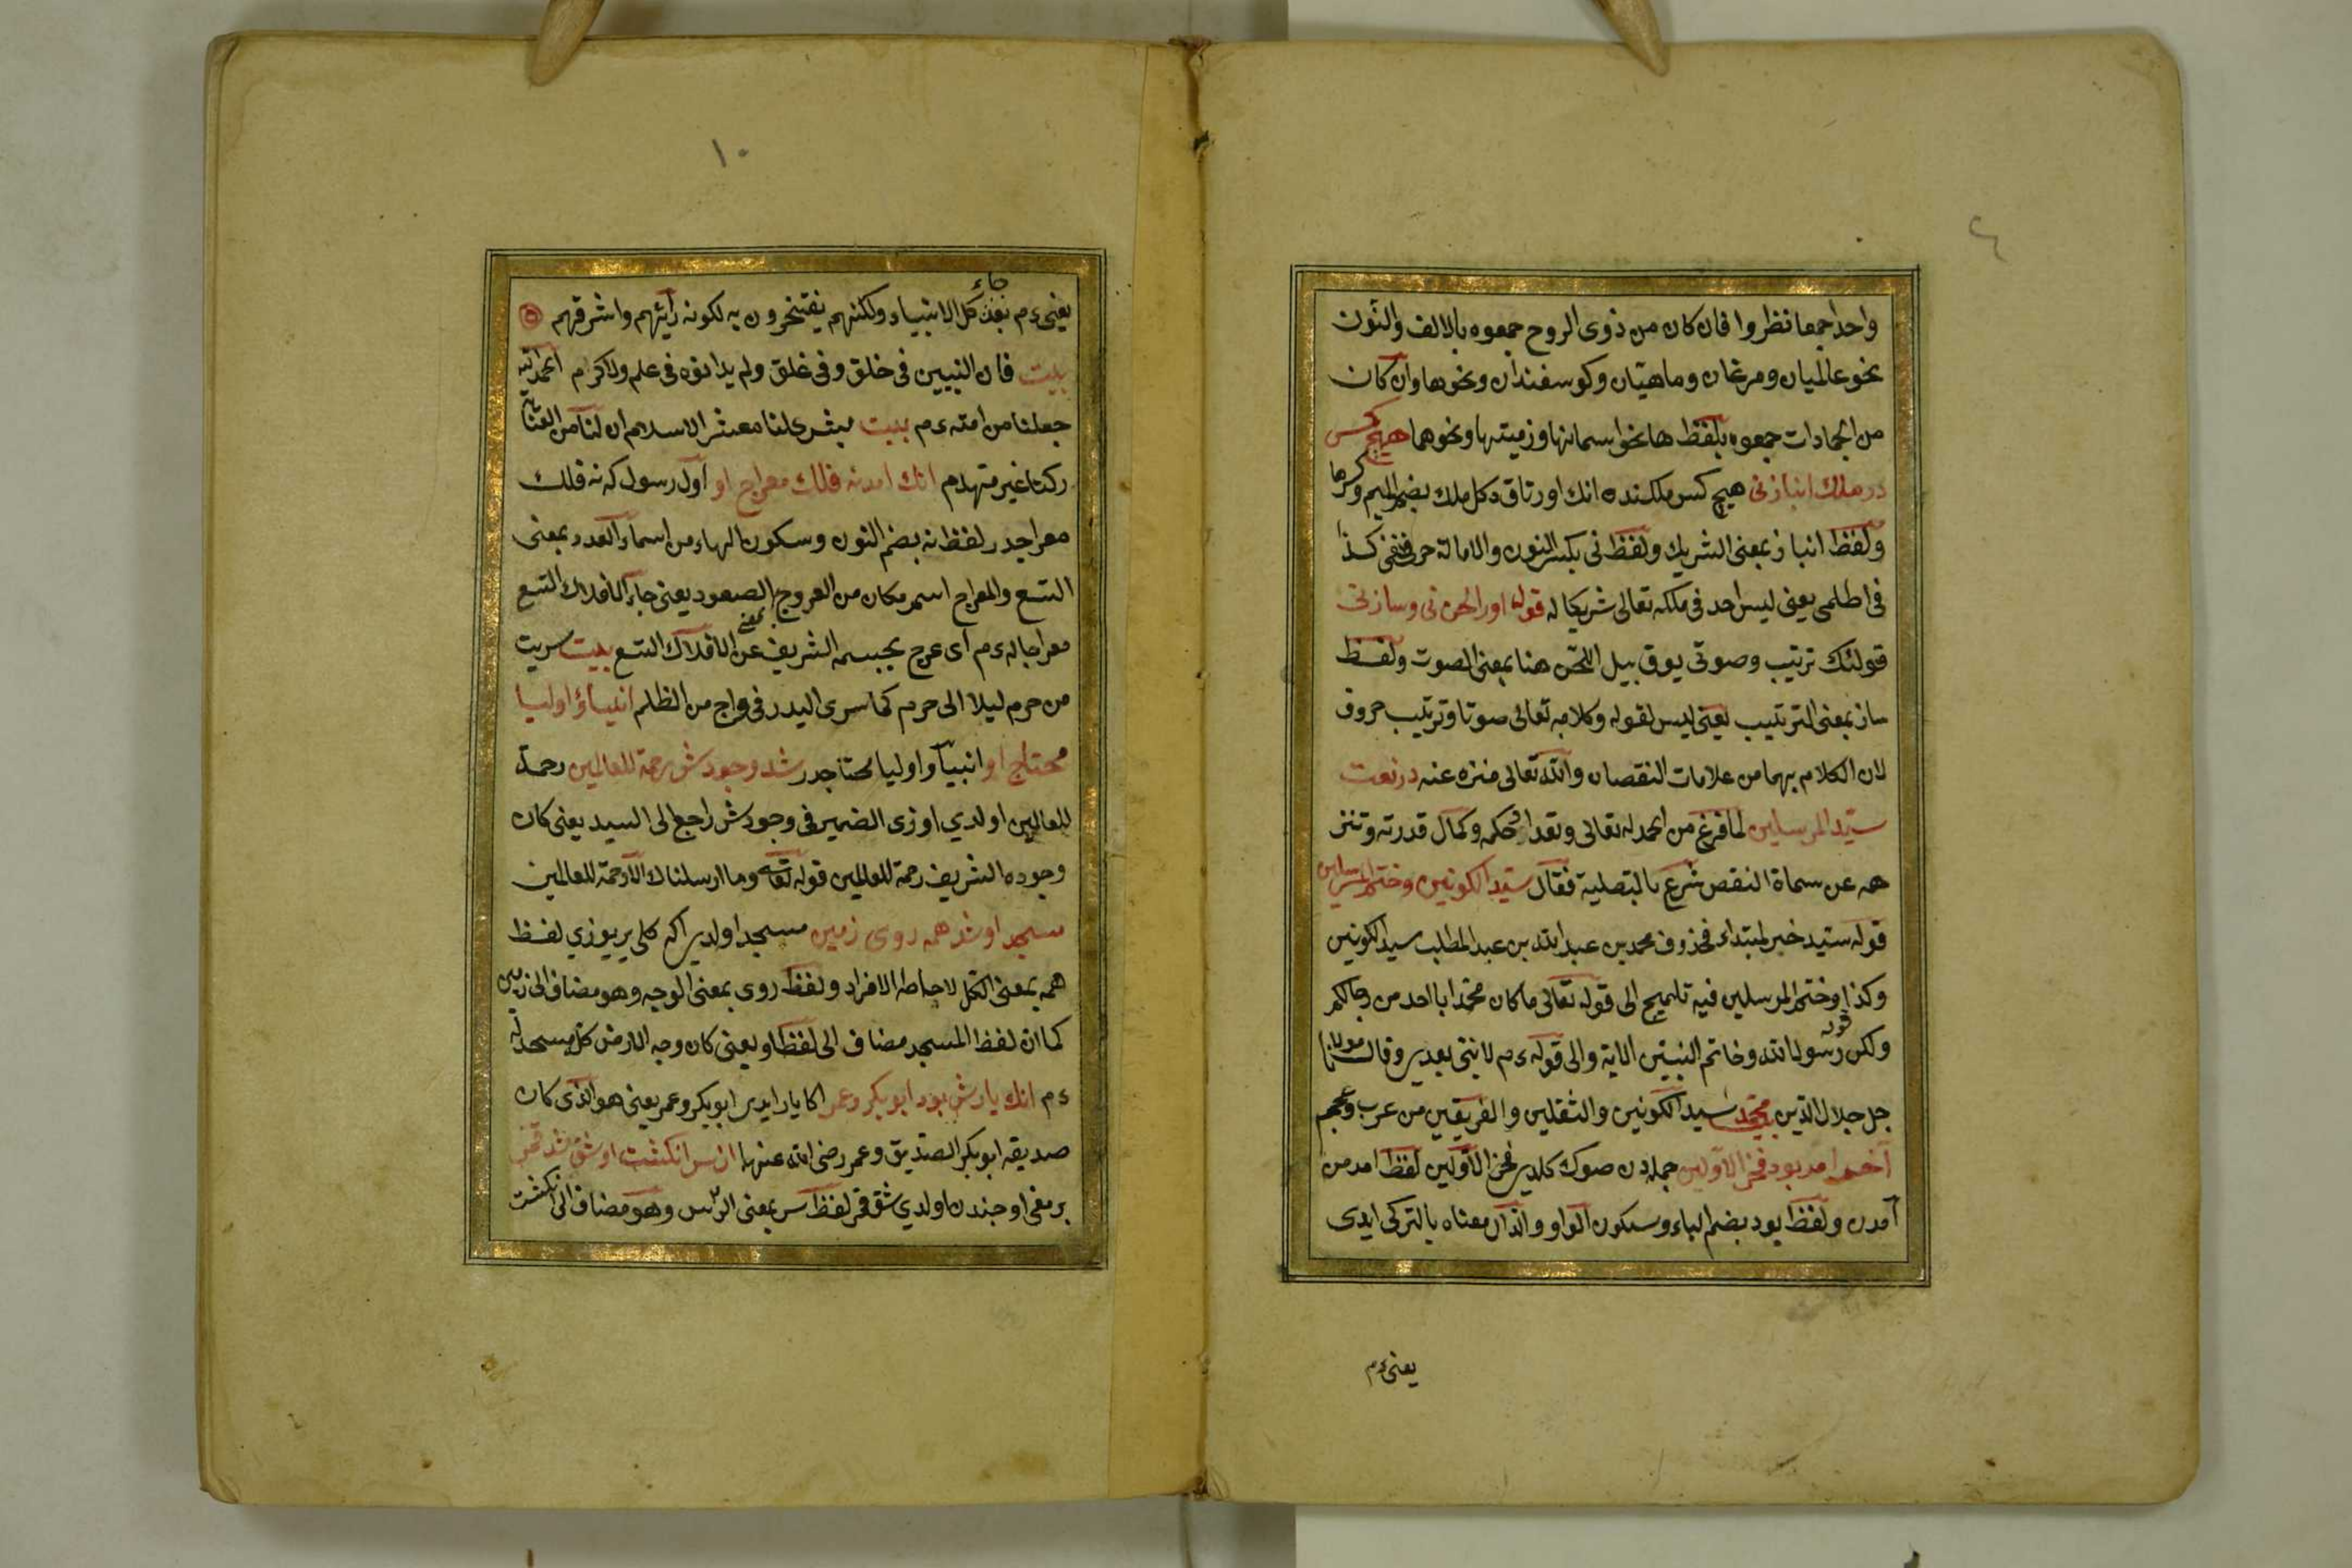 واحدا جمعا نظروا فان كان من ذوى الروح جمعوه بالالف والنون
نحو عالميان ومرغان وماهيان وكوسفندان ونحوها وان كان
من الجمادات جمعوه بلفظ ها نحو اسمانها وزمينها ونحوهما هيچ كس
در ملك انباز نى هيچ كس ملكنده انك اورتاق دكل ملك بضم الميم وكرها
ولفظ انباز بمعنى الشريك ولفظ نى بكسر النون والامالة حرف نفى كذا
فى اطلمى يعنى ليس احد فى ملكه تعالى شريكا له قوله اورا لحن نى وساز نى
قولنك ترتيب وصوتى يوق بيل اللحن هنا بمعنى الصوت ولفظ
ساز بمعنى الترتيب يعنى ليس لقوله وكلامه تعالى صوتا وترتيب حروف
لان الكلام بهما من علامات النقصان والله تعالى منزه عنه در نعت
سيد المرسلين لما فرغ من الحمد له تعالى وتعداد حكمه وكمال قدرته وتنز
هه عن سماة النقص شرع بالتصلية فقال سيد الكونين وختم المرسلين
قوله سيد خبر لمبتداء محذوف محمد بن عبد الله بن عبد المطلب سيد الكونين
وكذا وختم المرسلين فيه تلميح الى قوله تعالى ما كان محمد ابا احد من رجالكم
ولكن رسول الله وخاتم النبيين الاية والى قوله ءم لا نبى بعدى وقال مولانا
جل جلال الدين محمد سيد الكونين والثقلين والفريقين من عرب وعجم
آخر امد بود فخر الاولين جمله دن صوك كلدى فخر الاولين لفظ امد من
آمدن ولفظ بود بضم الباء وسكون الواو والدال معناه بالتركى ايدى
يعنى ءم
١٠
يعنى ءم بعد كل الانبياء ولكنهم يفتخرون به لكونه رأيهم واشرفهم
جاء
بيت فان النبيين فى خلق وفى خلق ولم يدانوه فى علم ولا كرم الحمد لله
جعلنا من امته ءم بيت بشرى لنا معشر الاسلام ان لنا من العناية
ركنا غير منهدم انك امد نه فلك معراج او اول رسول كه نه فلك
معراجدر لفظ نه بضم النون وسكون الهاء من اسماء العدد بمعنى
التسع والمعراج اسم مكان من العروج بمعنى الصعود يعنى جاء الافلاك التسع
معراجا له ءم اى عرج بجسمه الشريف عن الافلاك التسع بيت سريت
من حرم ليلا الى حرم كما سرى البدر فى داج من الظلم انبياء واوليا
محتاج او انبيا واوليا محتاجدر شد وجودش رحمة للعالمين رحمة
للعالمين اولدي اوزى الضمير فى وجودش راجع الى السيد يعنى كان
وجوده الشريف رحمة للعالمين قوله تعالى وما ارسلناك الا رحمة للعالمين
مسجد او شد همه روى زمين مسجد اولدى اكه كلى ير يوزي لفظ
همه بمعنى الكل لاحاطة الافراد ولفظ روى بمعنى الوجه وهو مضاف الى زمين
كما ان لفظ المسجد مضاف الى لفظ او يعنى كان وجه الارض كل مسجد له
ءم انك يارش بود ابو بكر وعمر اكا يار ايدى ابو بكر وعمر يعنى هو الذى كان
صديقه ابو بكر الصديق وعمر رضى الله عنهما از سر انكشت او شق شد قمر
برمغى اوجندن اولدي شق قمر لفظ سر بمعنى الرأس وهو مضاف الى انكشت